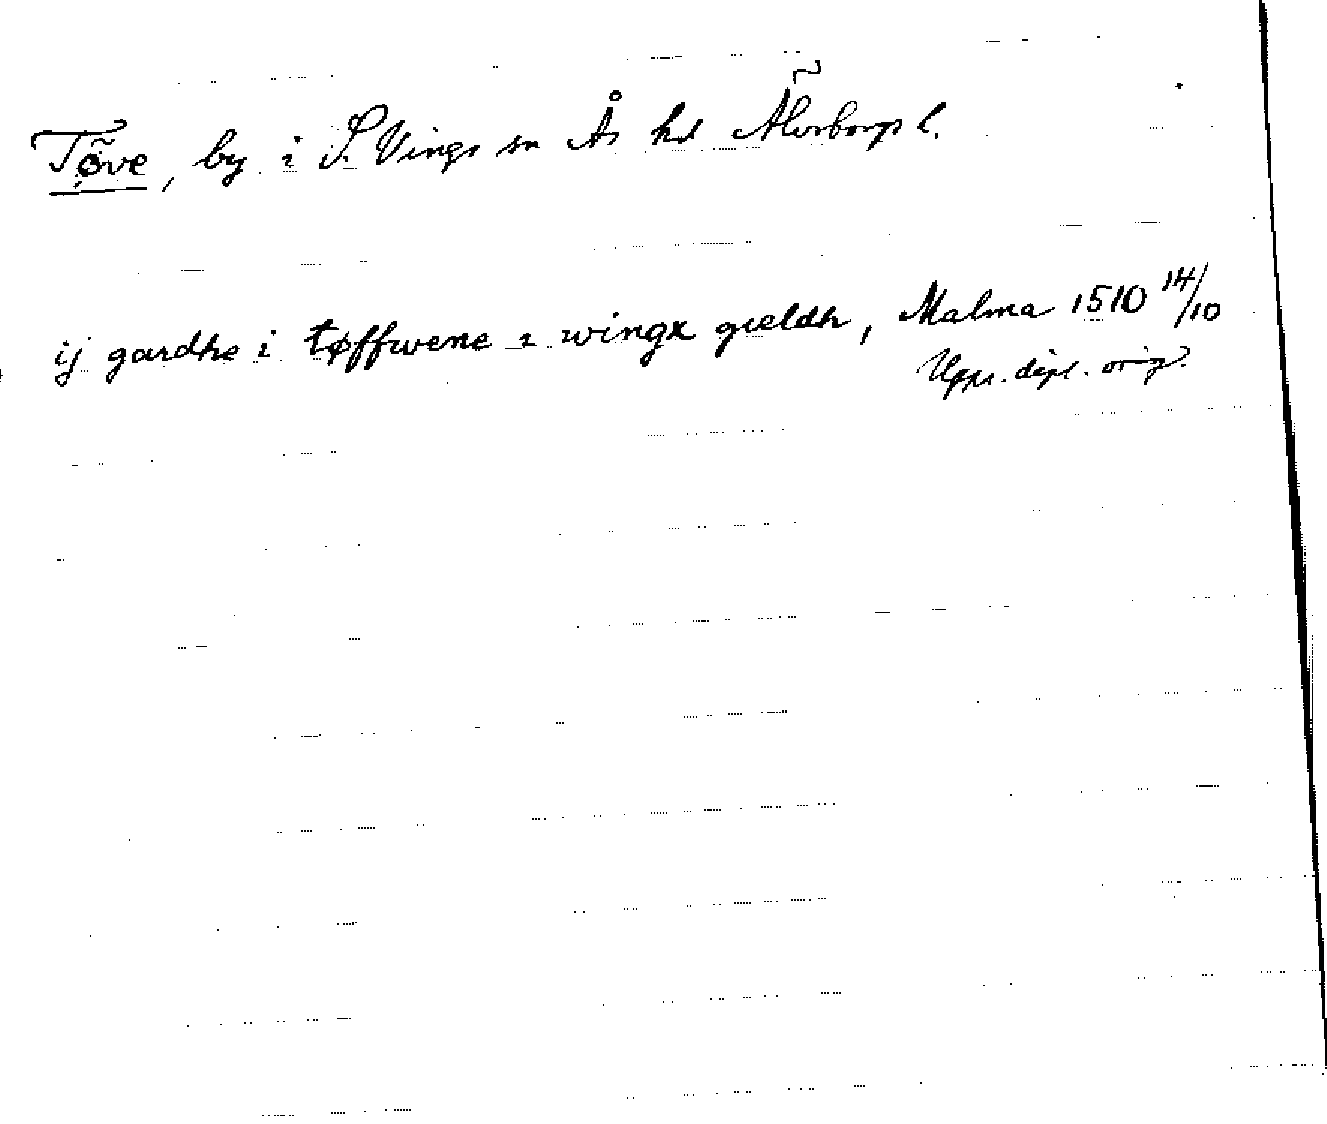 Tøve, by i S. Vings sn Ås hd Älvsborgs l.
ij gardhe i tøffwene i wingx gieldh, Malma 1510 14/10
Upps. dipl. orig.